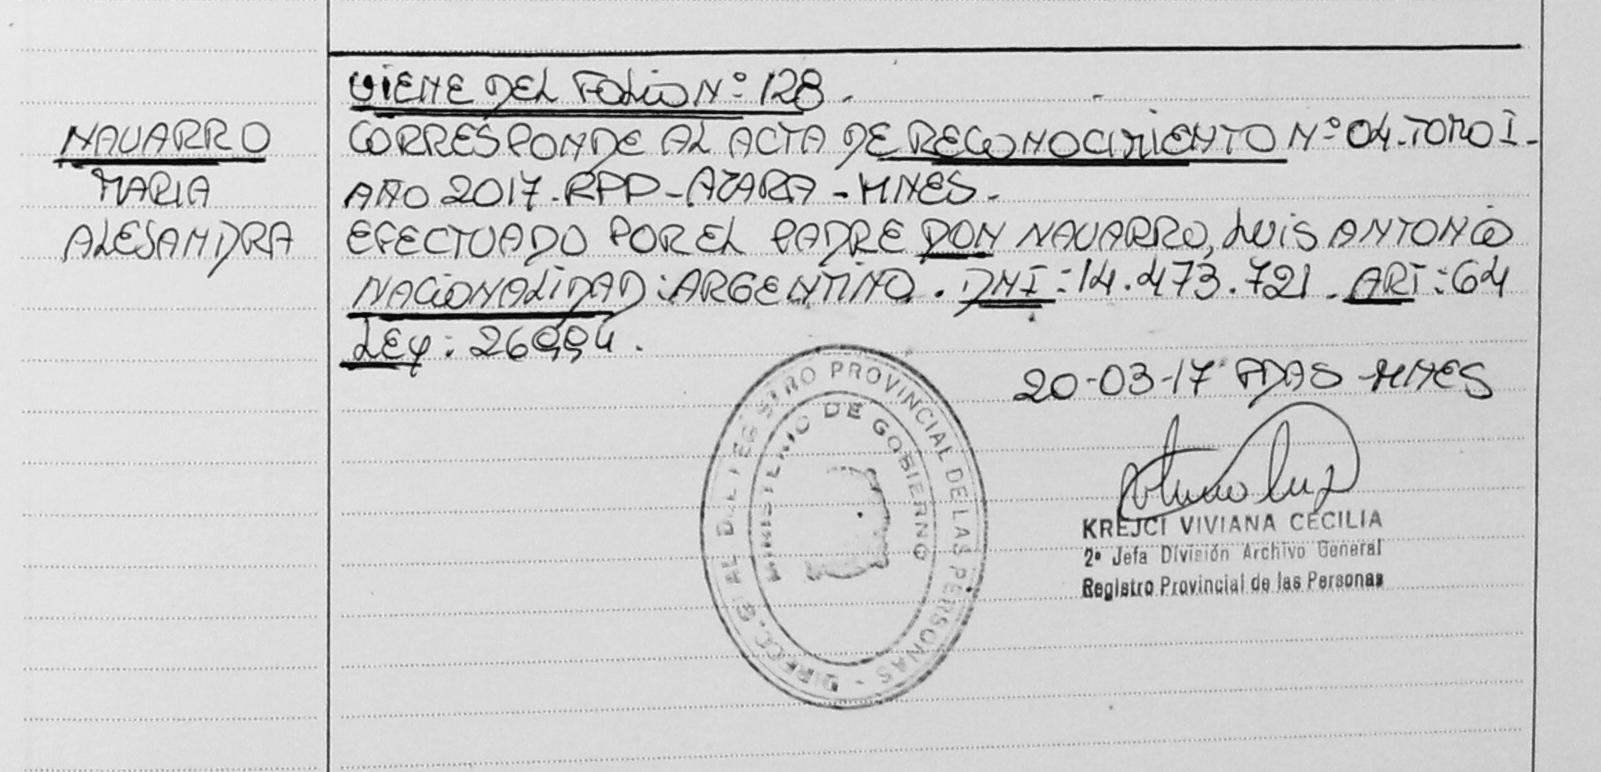 VIENE DEL FOLIO Nº 128.
NAVARRO
MARIA
ALESANDRA
CORRESPONDE AL ACTA DE RECONOCIMIENTO Nº 04-TOMO I-
AÑO 2017-RPP-AZARA-MNES-
EFECTUADO POR EL PADRE DON NAVARRO, LUIS ANTONIO
NACIONALIDAD: ARGENTINO. DNI: 14.473.721. ART: 64
LEY: 26994.
20-03-17 PDAS-MNES
DIRECC. GRAL DEL REGISTRO PROVINCIAL DE LAS PERSONAS -
MINISTERIO DE GOBIERNO
KREJCI VIVIANA CECILIA
2º Jefa División Archivo General
Registro Provincial de las Personas